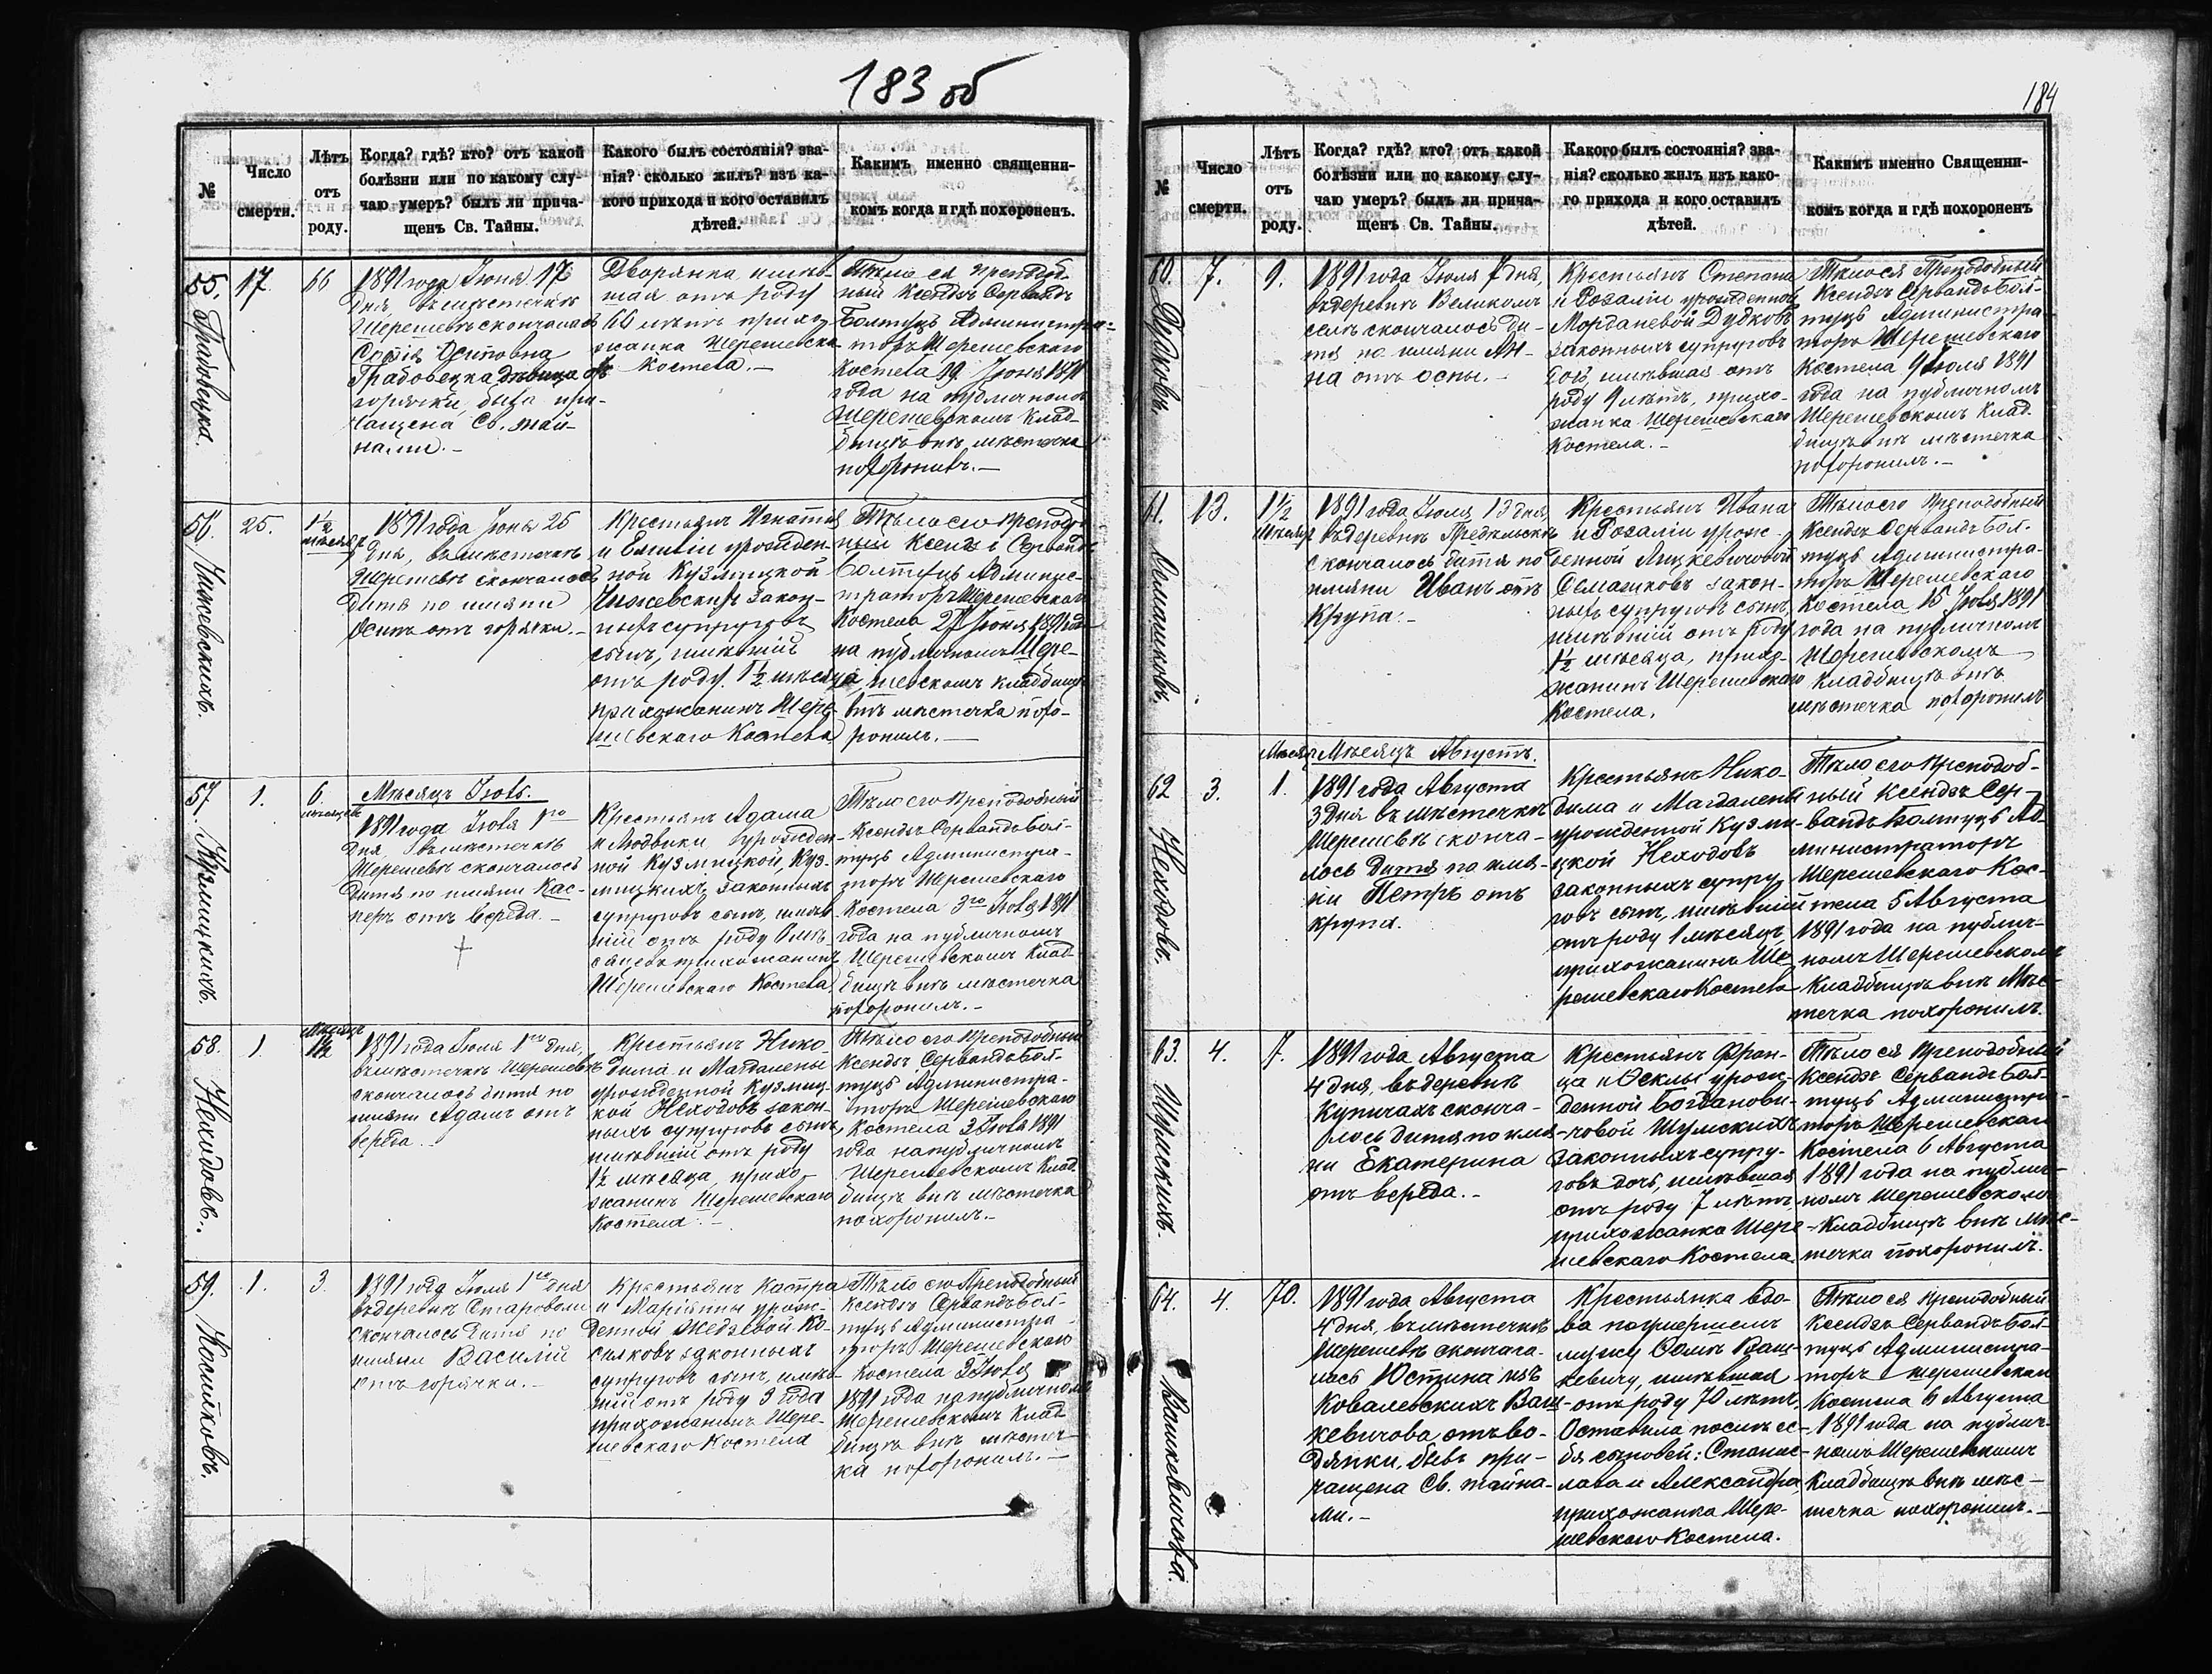 183 об
№
Число
смерти.
Лѣтъ
отъ
роду.
Когда? гдѣ? кто? отъ какой
болѣзни или по какому слу-
чаю умеръ? былъ ли прича-
щенъ Св. Тайны.
Какого былъ состоянія? зва-
нія? сколько жилъ? изъ ка-
кого прихода и кого оставилъ
дѣтей.
Какимъ именно священни-
комъ когда и гдѣ похороненъ.
55.
Грабовецка.
17.
66
1891 года Іюня 17
дня, въ мѣстечкѣ
Шерешевѣ скончалась
Софія Осиповна
Грабовецка дѣвица отъ
горячки, была при-
чащена Св. Тай-
нами.-
Дворянка, имѣв-
шая отъ роду
66 лѣтъ прихо-
жанка Шерешевска-
Костела.-
Тѣло ея преподоб-
ный Ксендзъ Сервандъ
Болтуць Администра-
торъ Шерешевскаго
Костела 19 Іюня 1891
года на публичномъ
Шерешевскомъ клад-
бищѣ внѣ мѣстечка
похоронилъ.-
56.
Чижевскихъ.
25.
1½
мѣсяца
1891 года Іюня 25
дня, въ мѣстечкѣ
Шерешевѣ скончалось
дитя по имяни
Осипъ отъ горячки.-
Крестьянъ Игнатія
и Емиліи урожден-
ной Кузмицкой
Чижевскихъ закон-
ныхъ супруговъ
сынъ, имѣвшій
отъ роду 1½ мѣсяца
прихожанинъ Шере-
шевскаго Костела
Тѣло его преподоб-
ный Ксендзъ Сервандъ
Болтуць Админис-
траторъ Шерешевскаго
Костела 27 Іюня 1891 года
на публичномъ Шере-
шевскомъ кладбищѣ
внѣ мѣстечка похо-
ронилъ.-
57.
Кузмицкихъ.
1.
6.
мѣсяцевъ
Мѣсяцъ Іюль.
1891 года Іюля 1го
дня, въ мѣстечкѣ
Шерешевѣ скончалось
дитя по имяни Кас-
перъ отъ вереда.-
Крестьянъ Адама
и Людвики урожден-
ной Кузмицкой, Куз-
мицкихъ законныхъ
супруговъ сынъ, имѣв-
шій отъ роду 6 мѣ-
сяцевъ прихожанинъ
Шерешевскаго Костела.
Тѣло его преподобный
Ксендзъ Сервандъ Бол-
туць Администра-
торъ Шерешевскаго
Костела 3го Іюля 1891
года на публичномъ
Шерешевскомъ Клад-
бищѣ внѣ мѣстечка
похоронилъ.-
58.
Неходовъ.
1
Мѣсяцъ
1½
1891 года Іюля 1го дня,
въ мѣстечкѣ Шерешевѣ
скончалось дитя по
имяни Адамъ отъ
вереда.-
Крестьянъ Нико-
дима и Магдалены
урожденной Кузмиц-
кой Неходовъ закон-
ныхъ супруговъ сынъ,
имѣвшій отъ роду
1½ мѣсяца, прихо-
жанинъ Шерешевскаго
Костела.-
Тѣло его Преподобный
Ксендзъ Сервандъ Бол-
туць Администра-
торъ Шерешевскаго
Костела 3 Іюля 1891
года на публичномъ
Шерешевскомъ Клад-
бищѣ внѣ мѣстечка
похоронилъ.-
59.
1.
3.
1891 года Іюля 1го дня
въ деревнѣ Староволи
скончалось дитя по
имяни Василій
отъ горячки.-
Крестьянъ
и Маріанны урож-
денной
законныхъ
супруговъ сынъ, имѣв-
шій отъ роду 3 года
прихожанинъ Шере-
шевскаго Костела
Тѣло его Преподобный
Ксендзъ Сервандъ Бол-
туць Администра-
торъ Шерешевскаго
Костела 3 Іюля
1891 года на публичномъ
Шерешевскомъ Клад-
бищѣ внѣ мѣстеч-
ка похоронилъ.-
184
№
Число
смерти.
Лѣтъ
отъ
роду.
Когда? гдѣ? кто? отъ какой
болѣзни или по какому слу-
чаю умеръ? былъ ли прича-
щенъ Св. Тайны.
Какого былъ состоянія? зва-
нія? сколько жилъ изъ како-
го прихода и кого оставилъ
дѣтей.
Какимъ именно Священни-
комъ когда и гдѣ похороненъ
60.
Дудковъ.
7.
9.
1891 года Іюля 7 дня,
въ деревнѣ Великомъ
селѣ скончалось ди-
тя по имяни Ан-
на отъ оспы.-
Крестьянъ Степана
и Розаліи урожденной
Морганевой Дудковъ
законныхъ супруговъ
дочь, имѣвшая отъ
роду 9 лѣтъ, прихо-
жанка Шерешевскаго
Костела.-
Тѣло ея Преподобный
Ксендзъ Сервандъ Бол-
туць Администра-
торъ Шерешевскаго
Костела 9 Іюля 1891
года на публичномъ
Шерешевскомъ Клад-
бищѣ внѣ мѣстечка
похоронилъ.-
61.
Семашковъ.
13.
1½
мѣсяца
1891 года Іюля 13 дня,
въ деревнѣ
скончалось дитя по
имяни Иванъ отъ
Крупа.-
Крестьянъ Ивана
и Розаліи урож-
денной Яцкевичовой
Семашковъ закон-
ныхъ супруговъ сынъ,
имѣвшій отъ роду
1½ мѣсяца, прихо-
жанинъ Шерешевскаго
Костела.
Тѣло его Преподобный
Ксендзъ Сервандъ Бол-
туць Администра-
торъ Шерешевскаго
Костела 15 Іюля 1891
года на публичномъ
Шерешевскомъ
Кладбищѣ внѣ
мѣстечка похоронилъ
62
Неходовъ.
3.
Мѣсяцъ
1.
Мѣсяцъ Августъ.
1891 года Августа
3 дня въ мѣстечкѣ
Шерешевѣ сконча-
лось дитя по имя-
ни Петръ отъ
крупа.
Крестьянъ Нико-
дима и Магдалены
урожденной Кузми-
цкой Неходовъ
законныхъ супру-
говъ сынъ, имѣвшій
отъ роду 1 мѣсяцъ
прихожанинъ Ше-
решевскаго Костела
Тѣло его преподоб-
ный Ксендзъ Сер-
вандъ Болтуць Ад-
министраторъ
Шерешевскаго Кос-
тела 5 Августа
1891 года на публич-
номъ Шерешевскомъ
Кладбищѣ внѣ Мѣс-
течка похоронилъ.
63.
Шумскихъ.
4.
7.
1891 года Августа
4 дня, въ деревнѣ
Купичахъ сконча-
лось дитя по имя-
ни Екатерина
отъ вереда.-
Крестьянъ Фран-
ца и Феклы урож-
денной Богданови-
човой Шумскихъ
законныхъ супру-
говъ дочь, имѣвшая
отъ роду 7 лѣтъ,
прихожанка Шере-
шевскаго Костела
Тѣло ея преподобный
Ксендзъ Сервандъ Бол-
туць Администра-
торъ Шерешевскаго
Костела 6 Августа
1891 года на публич-
номъ Шерешевскомъ
Кладбищѣ внѣ Мѣс-
течка похоронилъ.
64.
Вашкевичова.
4.
70.
1891 года Августа
4 дня, въ мѣстечкѣ
Шерешевѣ сконча-
лась Юстина изъ
Ковалевскихъ Ваш-
кевичова отъ во-
дянки, бывъ при-
чащена Св. тайна-
ми.-
Крестьянка вдо-
ва по умершемъ
мужу Вац-
кевичу, имѣвшая
отъ роду 70 лѣтъ.
Оставила послѣ се-
бя сыновей: Станис-
лава и Александра,
прихожанка Шере-
шевскаго Костела.
Тѣло ея преподобный
Ксендзъ Сервандъ Бол-
туць Администра-
торъ Шерешевскаго
Костела 6 Августа
1891 года на публич-
номъ Шерешевскомъ
Кладбищѣ внѣ мѣс-
течка похоронилъ.-